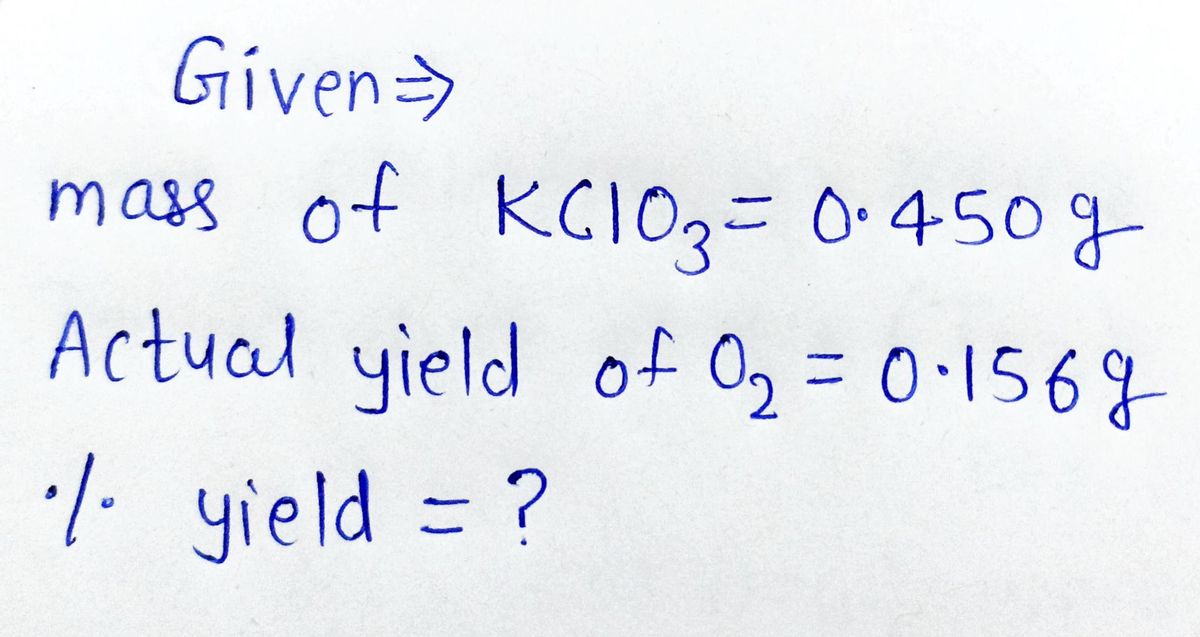 Given ⇒
mass of KClO₃ = 0.450 g
Actual yield of O₂ = 0.156 g
% yield = ?